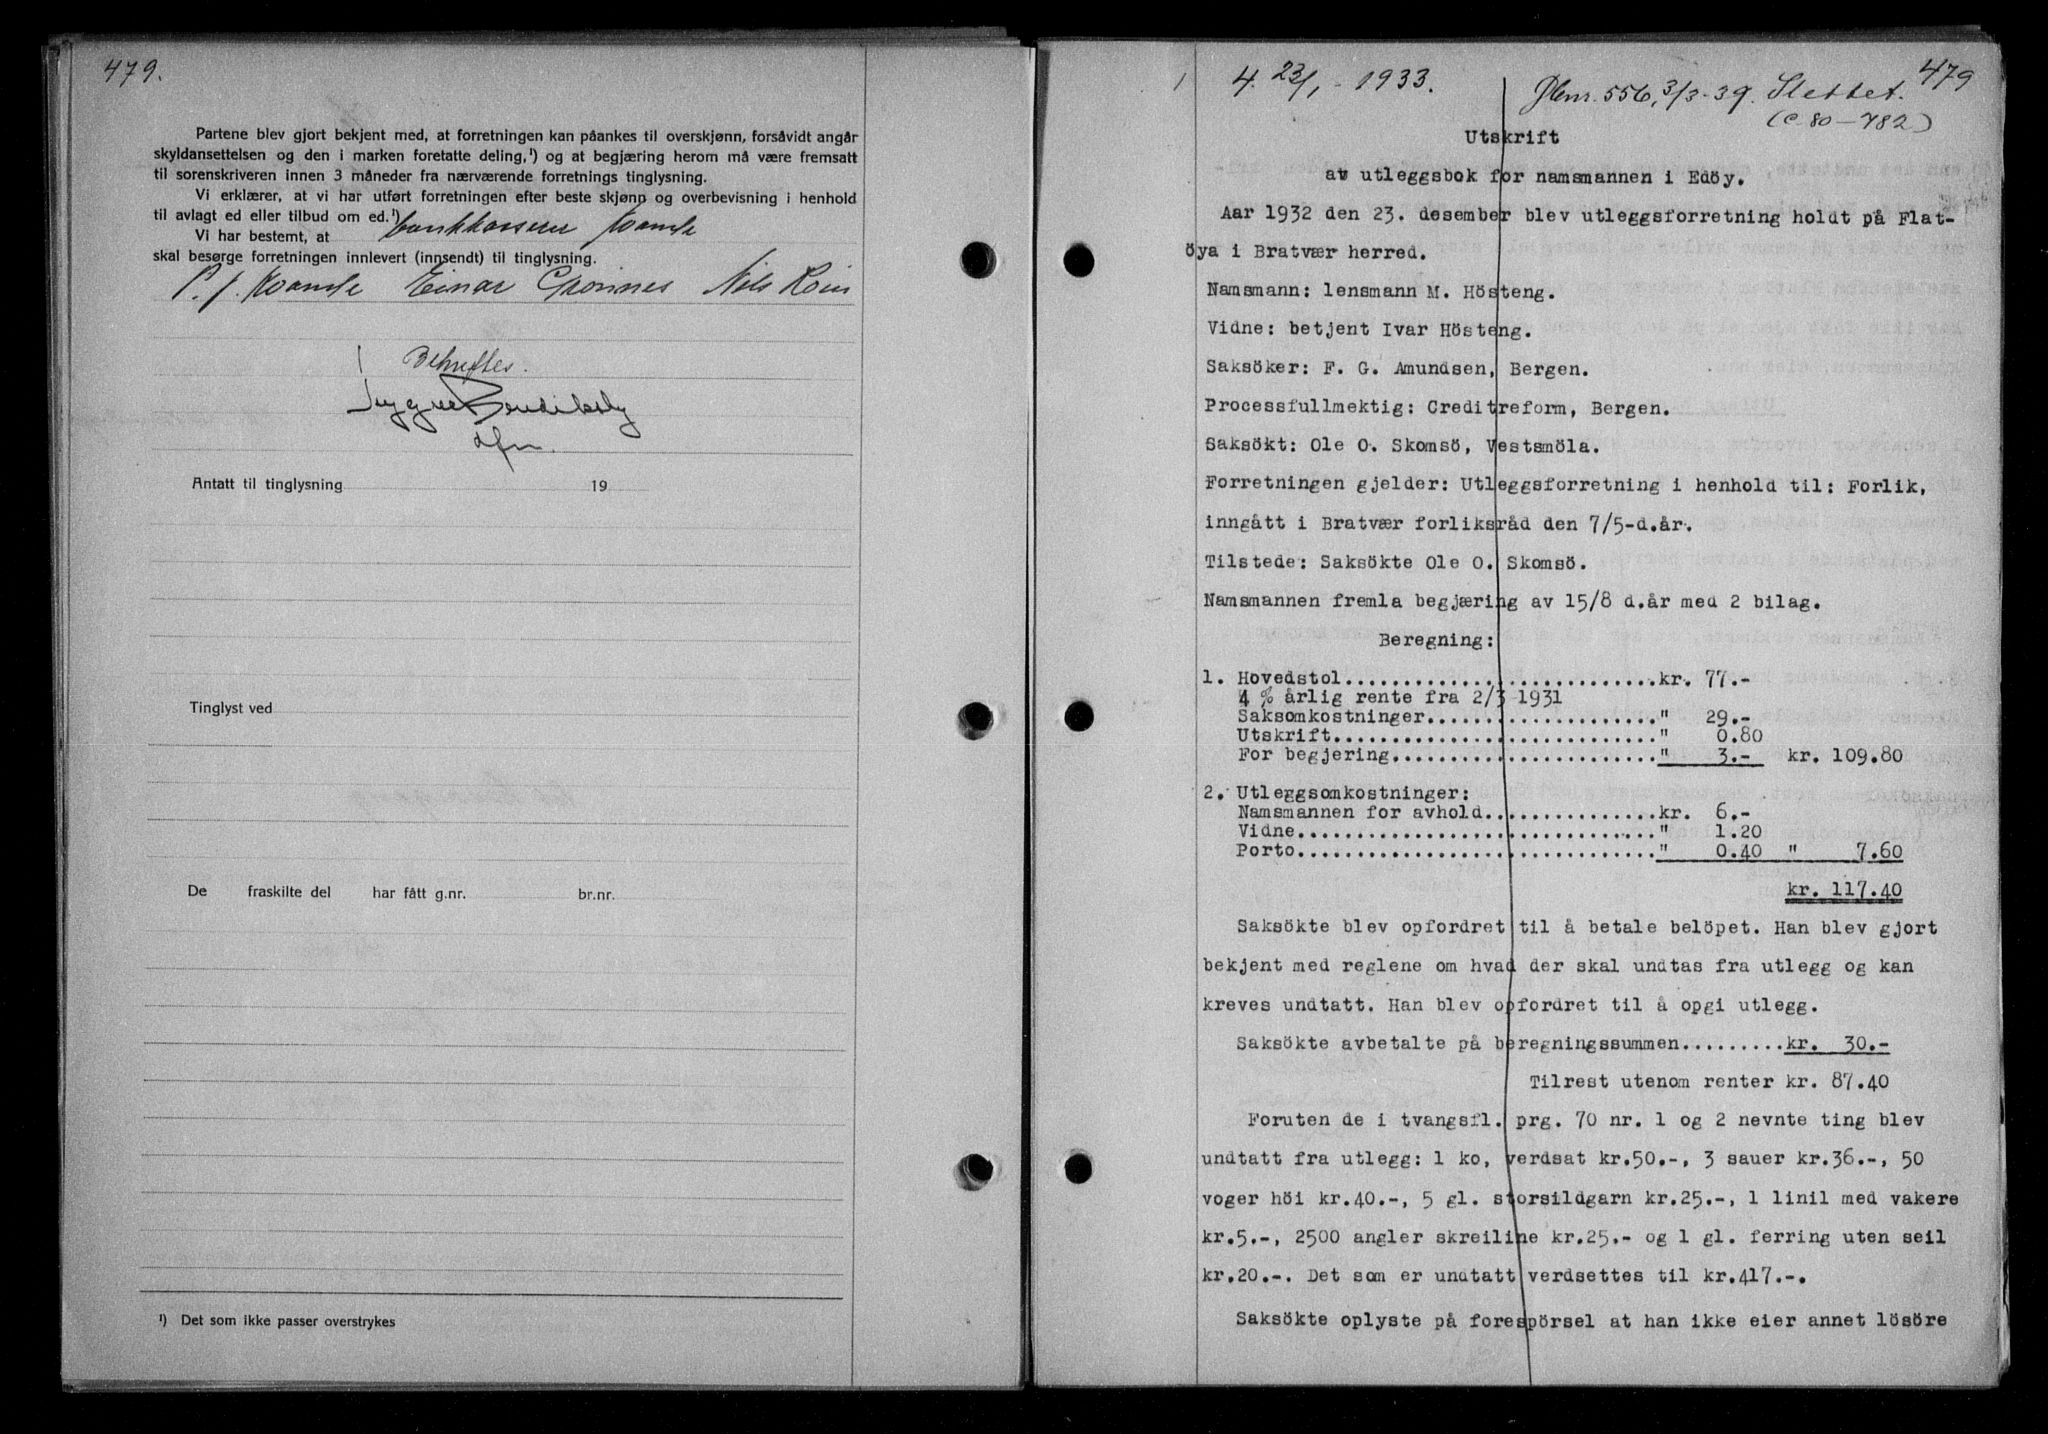 479.
Partene blev gjort bekjent med, at forretningen kan påankes til overskjønn, forsåvidt angår
skyldansettelsen og den i marken foretatte deling,¹) og at begjæring herom må være fremsatt
til sorenskriveren innen 3 måneder fra nærværende forretnings tinglysning.
Vi erklærer, at vi har utført forretningen efter beste skjønn og overbevisning i henhold
til avlagt ed eller tilbud om ed.¹)
Vi har bestemt, at bankkasserer
skal besørge forretningen innlevert (innsendt) til tinglysning.
P. J. Einar Grønnes Nils
Bekreftes.
Antatt til tinglysning 19
Tinglyst ved
De fraskilte del har fått g.nr. br.nr.
¹) Det som ikke passer overstrykes
479
4. 23/1 - 1933.
556, 3/3-39. Slettet.
(C. 80-782)
Utskrift
av utleggsbok for namsmannen i Edöy.
Aar 1932 den 23. desember blev utleggsforretning holdt på Flat-
öya i Bratvær herred.
Namsmann: lensmann M. Hösteng.
Vidne: betjent Ivar Hösteng.
Saksöker: F. G. Amundsen, Bergen.
Processfullmektig: Creditreform, Bergen.
Saksökt: Ole O. Skomsö, Vestsmöla.
Forretningen gjelder: Utleggsforretning i henhold til: Forlik,
inngått i Bratvær forliksråd den 7/5-d.år.
Tilstede: Saksökte Ole O. Skomsö.
Namsmannen fremla begjæring av 15/8 d.år med 2 bilag.
Beregning:
1. Hovedstol.............................kr. 77.-
4 % årlig rente fra 2/3 1931
Saksomkostninger......................" 29.-
Utskrift..............................." 0.80
For begjering.........................." 3.- kr. 109.80
2. Utleggsomkostninger:
Namsmannen for avhold................kr. 6.-
Vidne.................................." 1.20
Porto.................................." 0.40 " 7.60
kr. 117.40
Saksökte blev opfordret til å betale belöpet. Han blev gjort
bekjent med reglene om hvad der skal undtas fra utlegg og kan
kreves undtatt. Han blev opfordret til å opgi utlegg.
Saksökte avbetalte på beregningssummen.........kr. 30.-
Tilrest utenom renter kr. 87.40
Foruten de i tvangsfl. prg. 70 nr. 1 og 2 nevnte ting blev
undtatt fra utlegg: 1 ko, verdsat kr.50.-, 3 sauer kr.36.-, 50
voger höi kr.40.-, 5 gl. storsildgarn kr.25.-, 1 linil med vakere
kr.5.-, 2500 angler skreiline kr.25.- og 1 gl. ferring uten seil
kr.20.-. Det som er undtatt verdsettes til kr.417.-.
Saksökte oplyste på forespörsel at han ikke eier annet lösöre